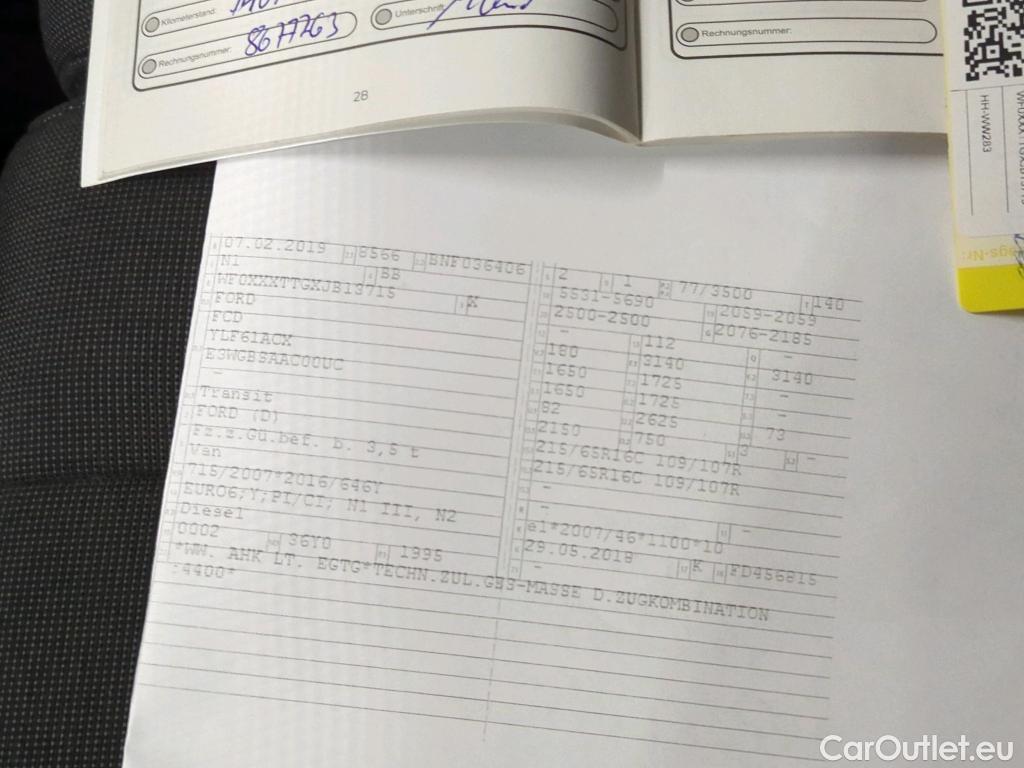 Kilometerstand:
Unterschrift
Rechnungsnummer: 8677263
Rechnungsnummer:
28
HH-WW283
gs-Nr.:
07.02.2019 8566 BNF036406
N1 BB
WF0XXXTTGXJB13715 X
FORD
FCD
YLF61ACX
E3WGBSAAC00UC
-
Transit
FORD (D)
Fz.z.Gü.bef. b. 3,5 t
Van
715/2007*2016/646Y
EURO6;Y;PI/CI; N1 III, N2
Diesel
0002 36Y0 1995
2 1 77/3500 140
5531-5690 2059-2059
2500-2500 2076-2185
- 112 -
180 3140 3140
1650 1725 -
1650 1725 -
82 2625 73
2150 750 3 -
215/65R16C 109/107R
215/65R16C 109/107R
-
- -
e1*2007/46*1100*10
29.05.2018 K FD456815
-
*WW. AHK LT. EGTG*TECHN.ZUL.GES-MASSE D.ZUGKOMBINATION
:4400*
CarOutlet.eu